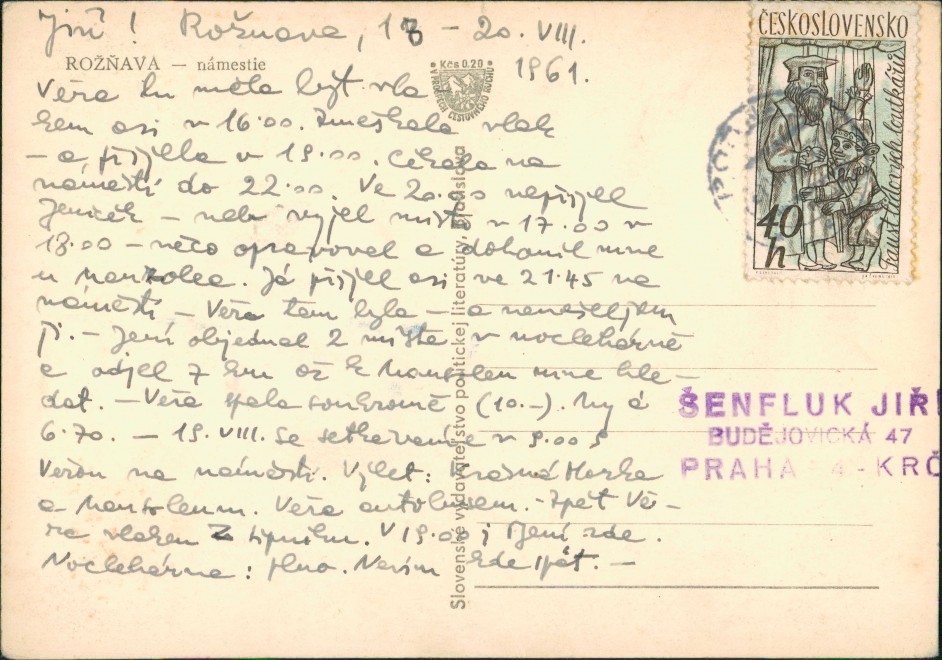 Jiří! Rožnava, 18 - 20. VIII.
1961.
ROŽŇAVA — námestie
Kčs 0.20
Věra tu měla být vla
kem asi v 16.00. Zmeškala vlak
- a přijela v 19.00. Čekala na
náměstí do 22.00. Ve 20.00 nepřijel
Jeníček - neb vyjel místo v 17.00 v
18.00 - něco opravoval a dohonil mne
u mauzolea. Já přijel asi ve 21.45 na
náměstí - Věra tam byla - a nenašel jsem
ji. - Jení objednal 2 místa v noclehárně
a odjel 7 km až k mauzoleu mne hle-
dat. - Věra spala soukromě (10.-). My á
6.70. - 19. VIII. se setkáváme v 9.00 s
Věrou na náměstí. Výlet: Krásná Horka
a mauzoleum. Věra autobusem. - Zpět Vě-
ra vlakem z Lipníku. V 19.00 i Jení zde.
Noclehárna: plno. Nevím kde spát. -
Slovenské vydavateľstvo politickej literatúry, Bratislava
ČESKOSLOVENSKO
40 h
Faust lidových loutkářů
ŠENFLUK JIŘ
BUDĚJOVICKÁ 47
PRAHA 4 - KRČ